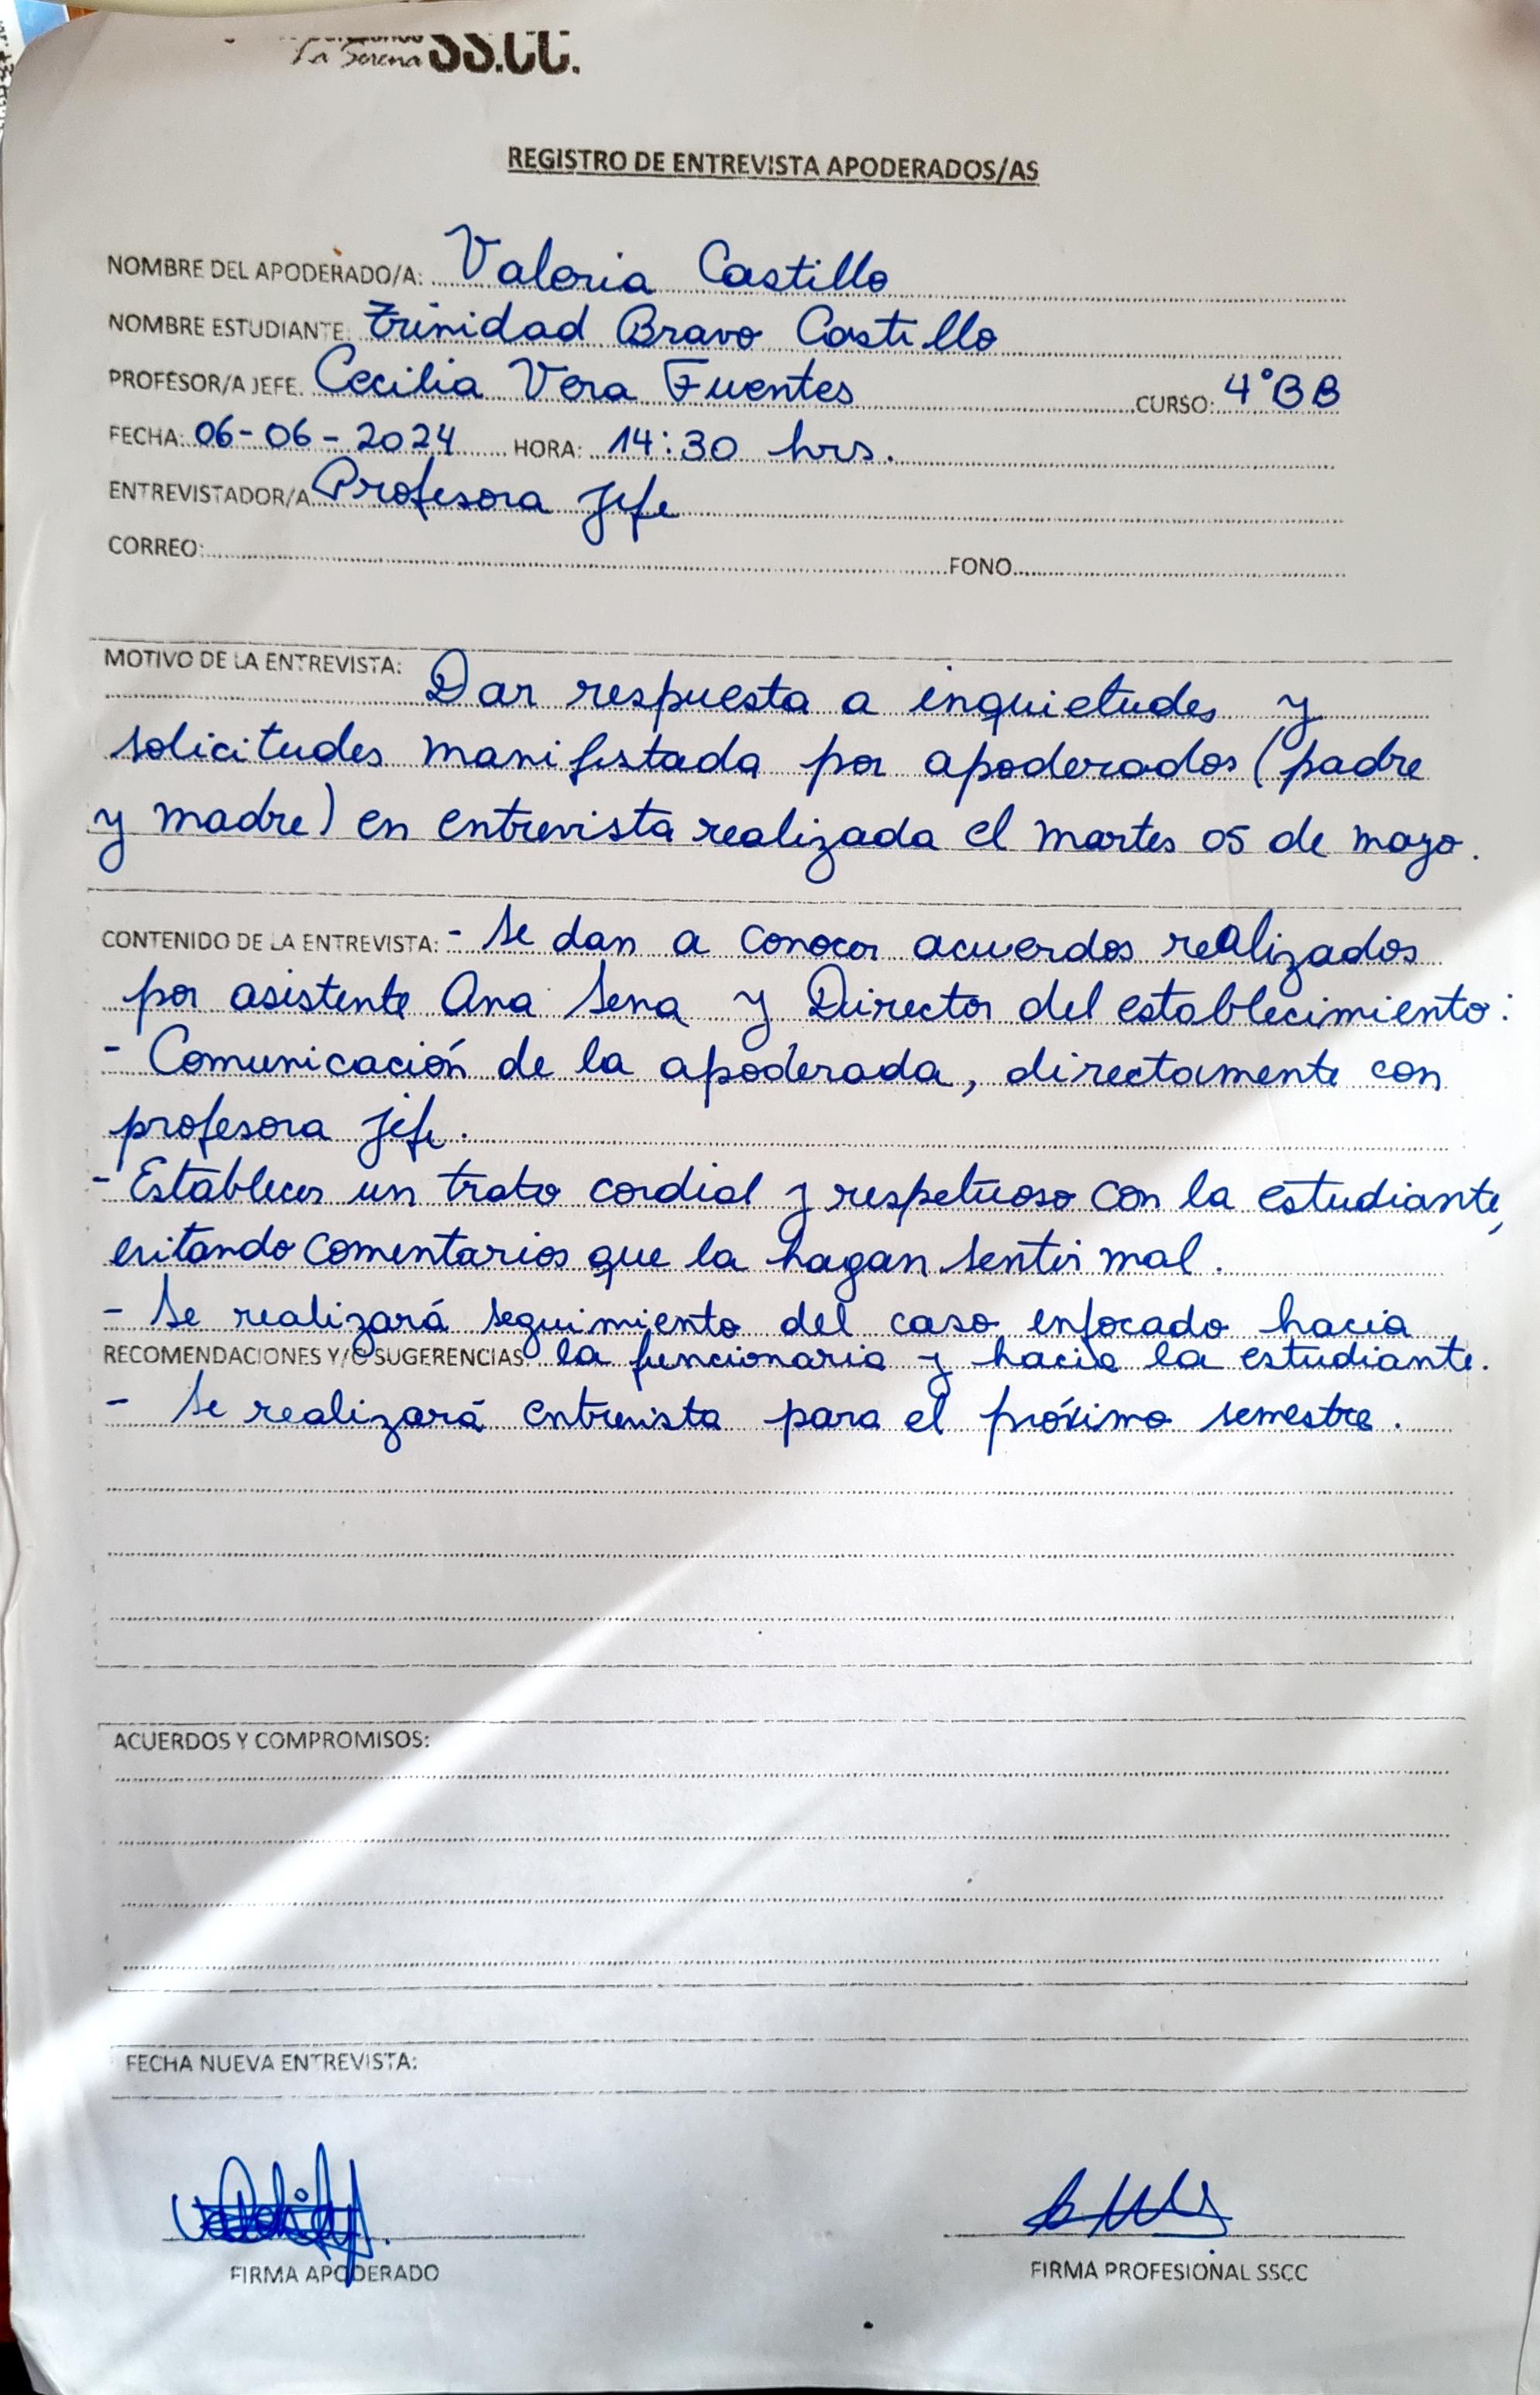 La Serena SS.CC.
REGISTRO DE ENTREVISTA APODERADOS/AS
NOMBRE DEL APODERADO/A: Valeria Castillo
NOMBRE ESTUDIANTE: Trinidad Bravo Castillo
PROFESOR/A JEFE. Cecilia Vera Fuentes CURSO: 4°BB
FECHA: 06-06-2024 HORA: 14:30 hrs.
ENTREVISTADOR/A Profesora Jefe
CORREO: FONO
MOTIVO DE LA ENTREVISTA: Dar respuesta a inquietudes y
solicitudes manifestada por apoderados (padre
y madre) en entrevista realizada el martes 05 de mayo.
CONTENIDO DE LA ENTREVISTA: - Se dan a conocer acuerdos realizados
por asistente Ana Sena y Director del establecimiento:
- Comunicación de la apoderada, directamente con
profesora jefe.
- Establecer un trato cordial y respetuoso con la estudiante,
evitando comentarios que la hagan sentir mal.
- Se realizará seguimiento del caso enfocado hacia
RECOMENDACIONES Y/O SUGERENCIAS: la funcionaria y hacia la estudiante.
- Se realizará entrevista para el próximo semestre.
ACUERDOS Y COMPROMISOS:
FECHA NUEVA ENTREVISTA:
FIRMA APODERADO FIRMA PROFESIONAL SSCC